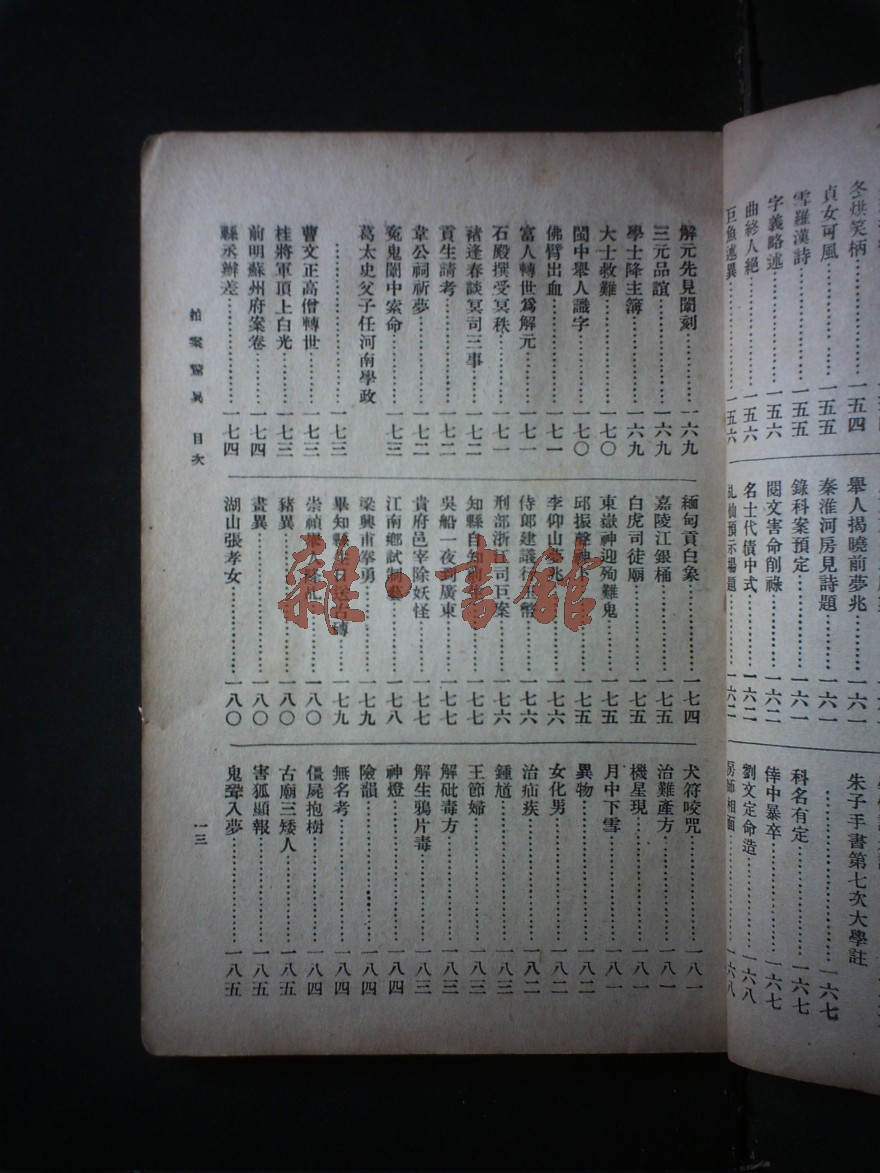 冬烘笑柄…………一五四
貞女可風…………一五五
雪羅漢詩…………一五五
字義略述…………一五六
曲終人絕…………一五六
巨魚述異…………一五六
舉人揭曉前夢兆…………一六一
秦淮河房見詩題…………一六一
錄科案預定…………一六一
閱文害命削祿…………一六二
名士代債中式…………一六二
乩仙預示場題…………一六二
朱子手書第七次大學註
…………一六七
科名有定…………一六七
倖中暴卒…………一六七
劉文定命造…………一六八
房師相面…………一六八
解元先見闈刻…………一六九
三元品誼…………一六九
學士降主簿…………一六九
大士救難…………一七〇
閩中舉人識字…………一七〇
佛臂出血…………一七一
富人轉世爲解元…………一七一
石殿撰受冥秩…………一七一
褚逢春談冥司三事…………一七二
貢生請考…………一七二
韋公祠祈夢…………一七二
冤鬼闈中索命…………一七三
葛太史父子任河南學政
…………一七三
曹文正高僧轉世…………一七三
桂將軍頂上白光…………一七三
前明蘇州府案卷…………一七四
縣丞辦差…………一七四
緬甸貢白象…………一七四
嘉陵江銀桶…………一七五
白虎司徒廟…………一七五
東嶽神迎殉難鬼…………一七五
邱振聲神卜…………一七五
李仰山夢兆…………一七六
侍郎建議行玉幣…………一七六
刑部浙江司巨案…………一七六
知縣自知前生…………一七七
吳船一夜到廣東…………一七七
貴府邑宰除妖怪…………一七七
江南鄉試制藝…………一七八
梁興甫拳勇…………一七九
畢知縣生日送古磚…………一七九
崇禎降乩…………一八〇
豬異…………一八〇
畫異…………一八〇
湖山張孝女…………一八〇
犬符咬咒…………一八一
治難產方…………一八一
機星現…………一八一
月中下雪…………一八一
異物…………一八二
女化男…………一八二
治疝疾…………一八二
鍾馗…………一八三
王節婦…………一八三
解砒毒方…………一八三
解生鴉片毒…………一八三
神燈…………一八四
險韻…………一八四
無名考…………一八四
僵屍抱樹…………一八四
古廟三矮人…………一八五
害狐顯報…………一八五
鬼聳入夢…………一八五
拍案驚異 目次
一三
雜·書館